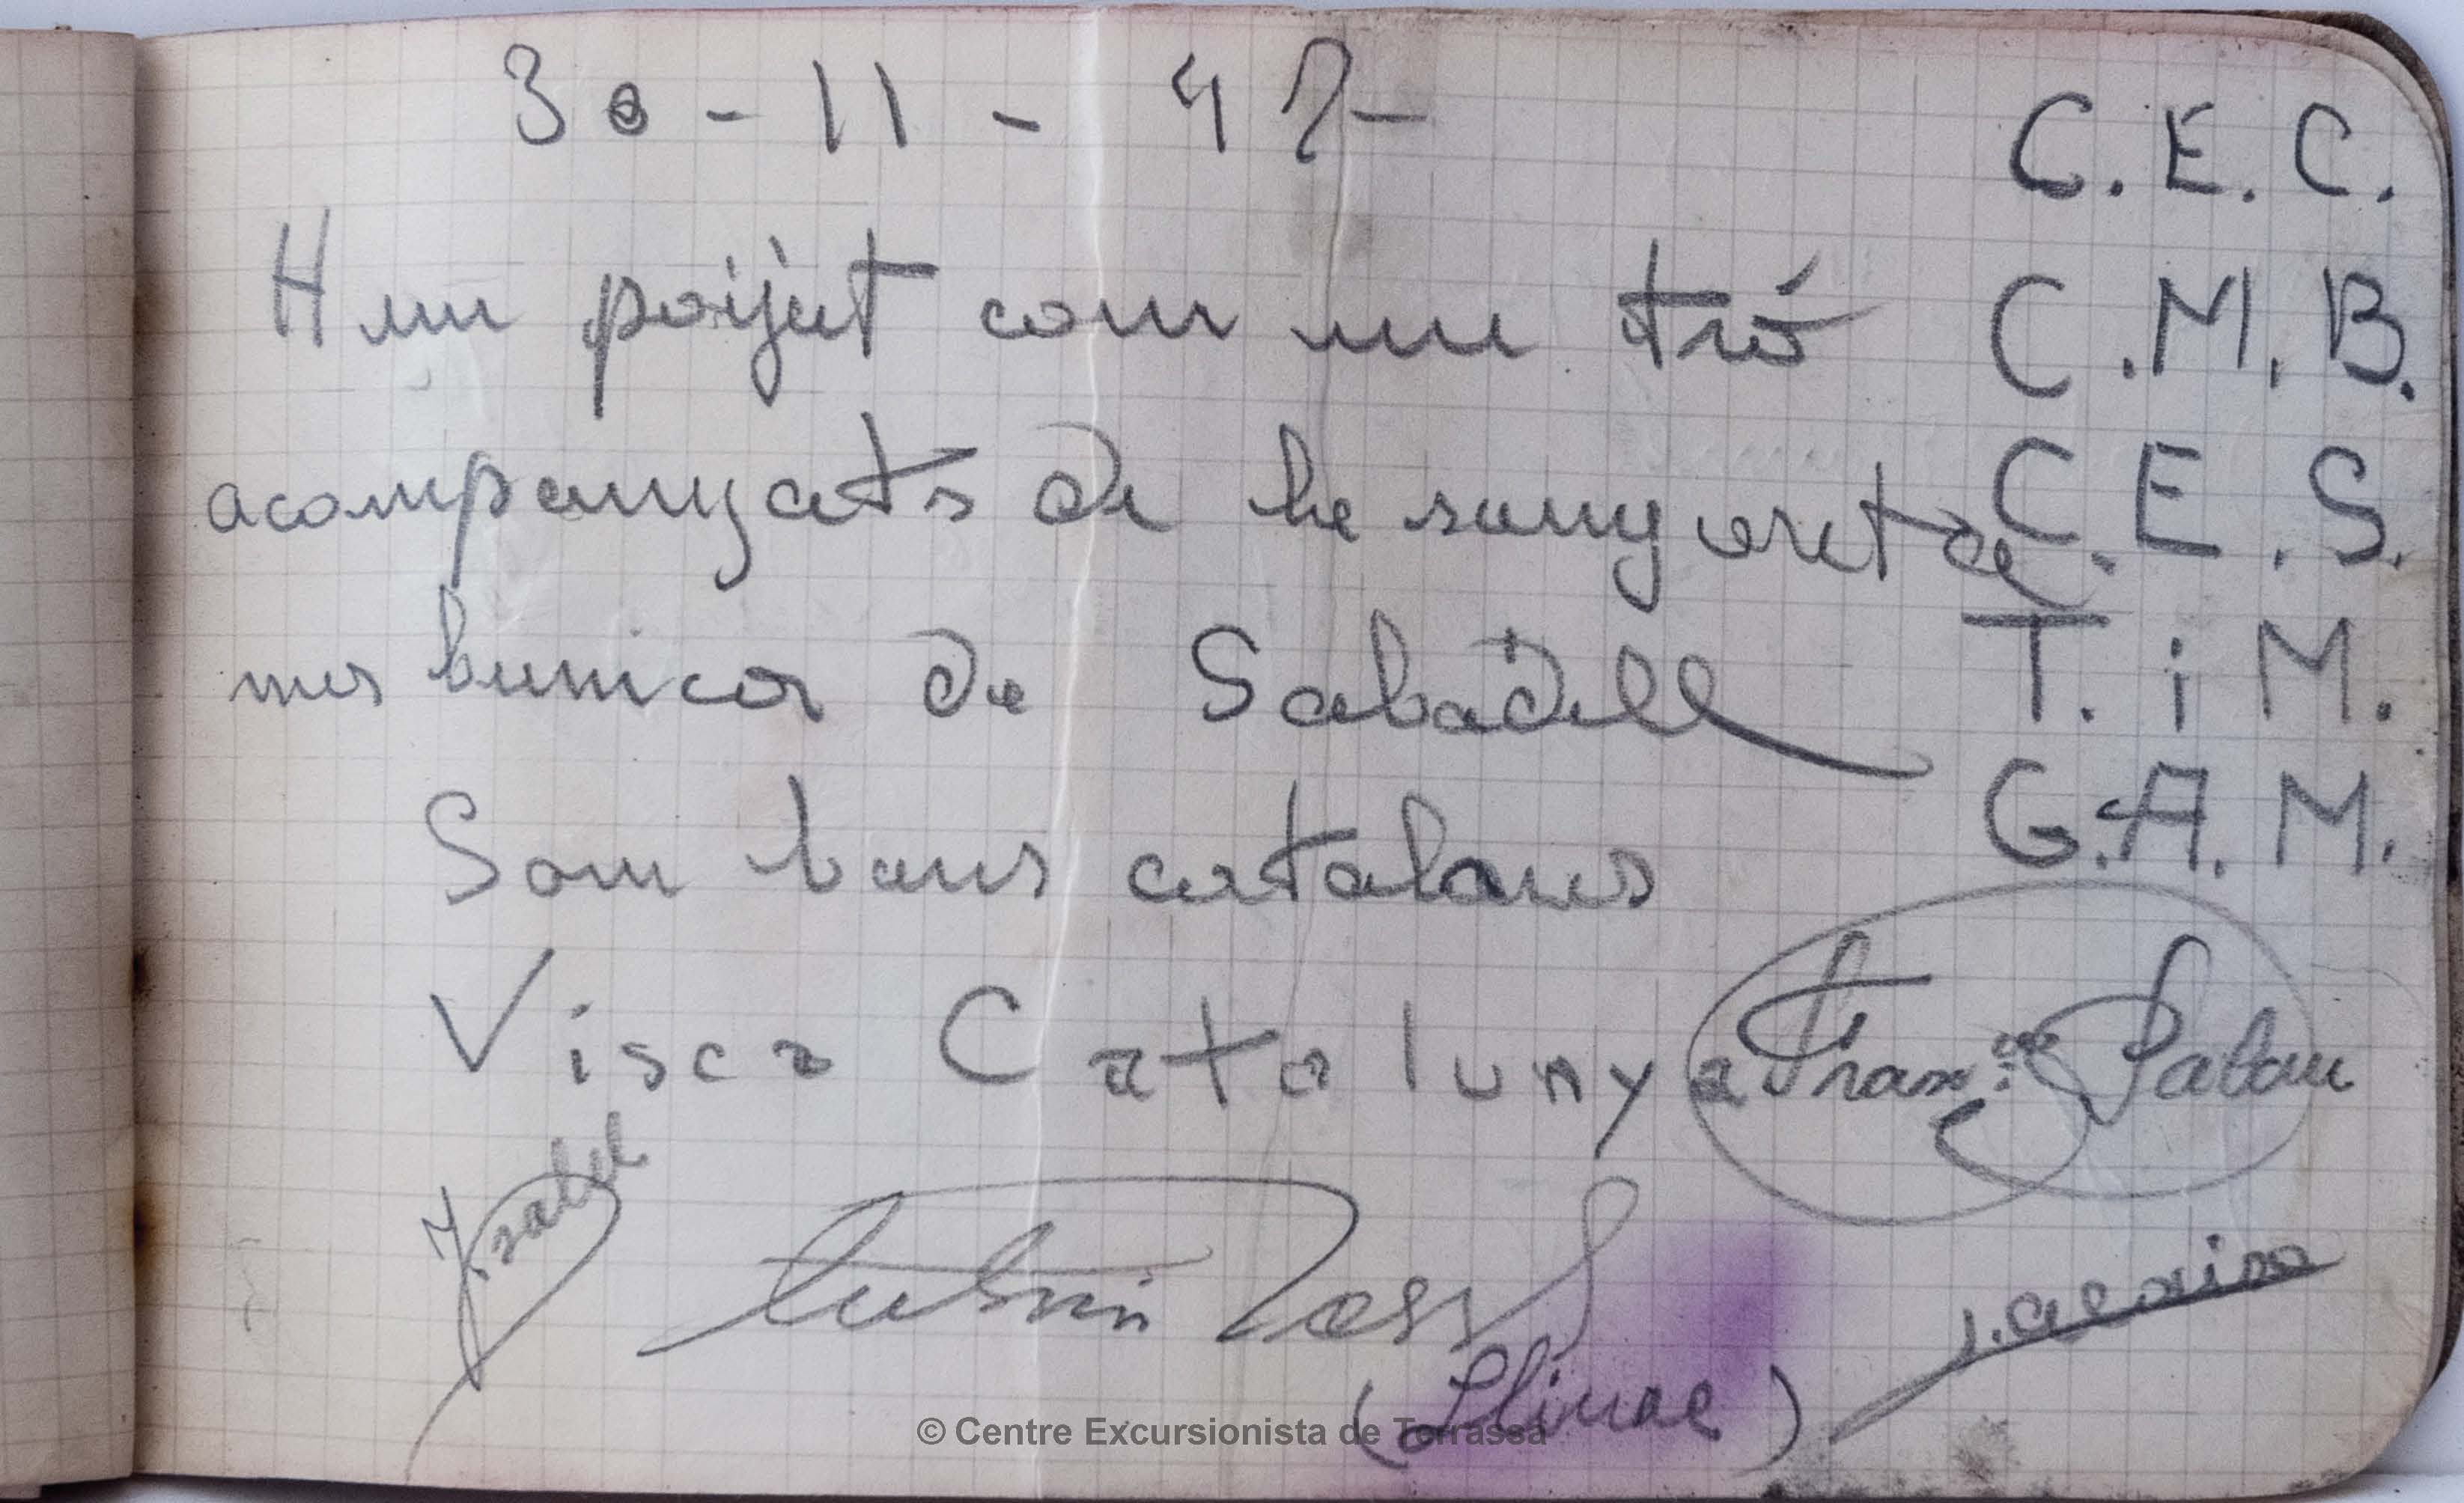 30-11-47-
Hem poijat com un tró
acompanyats de la sanyoreta
mes bunica de Sabadell
Som bons catalans
Visca Catalunya
C.E.C.
C.M.B.
C.E.S.
T. i M.
G.A.M.
Fran.co Palau
Ysabel
(Llimae)
© Centre Excursionista de Terrassa